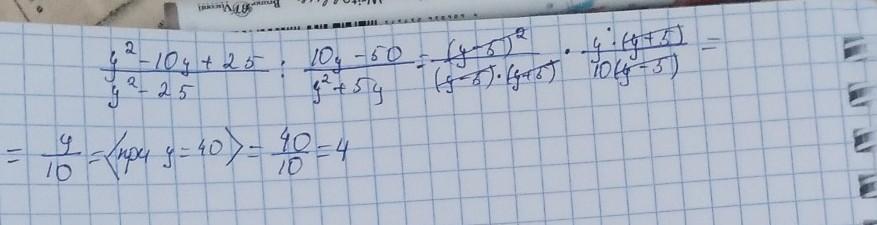 (y²-10y+25)/(y²-25) : (10y-50)/(y²+5y) = (y-5)²/((y-5)·(y+5)) · y·(y+5)/(10(y-5)) =
= y/10 = <при y=40> = 40/10 = 4